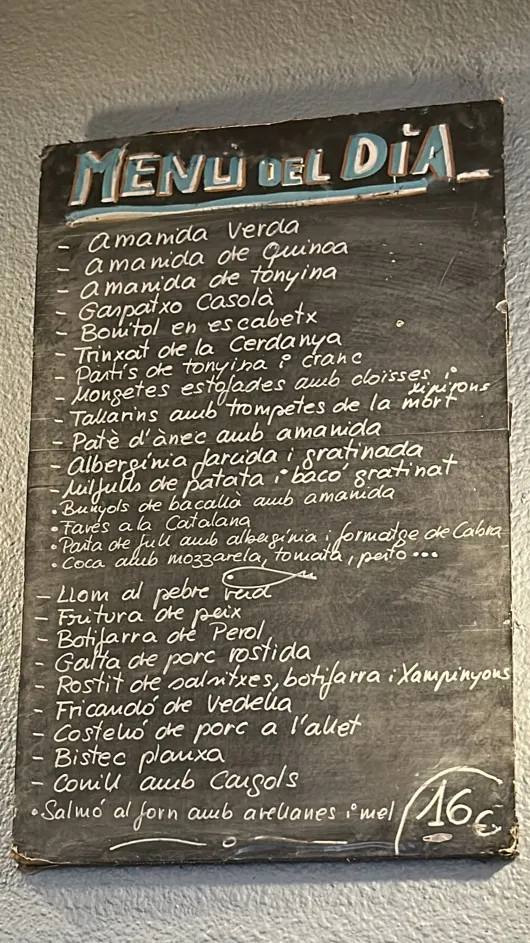 MENU DEL DIA
- amanida verda
- amanida de Quinoa
- amanida de tonyina
- Gaspatxo Casolà
- Bonitol en escabetx
- Trinxat de la Cerdanya
- Pastís de tonyina i cranc
- Mongetes estofades amb cloïsses i xipirons
- Tallarins amb trompetes de la mort
- Patè d'ànec amb amanida
- Albergínia farcida i gratinada
- Milfulls de patata i bacó gratinat
• Bunyols de bacallà amb amanida
• Faves a la Catalana
• Pasta de full amb albergínia i formatge de Cabra
• Coca amb mozzarela, tomata, pesto...
- Llom al pebre verd
- Fritura de peix
- Botifarra de Perol
- Galta de porc rostida
- Rostit de salsitxes, botifarra i Xampinyons
- Fricandó de Vedella
- Costelló de porc a l'allet
- Bistec planxa
- Conill amb Cargols
• Salmó al forn amb avellanes i mel
16€